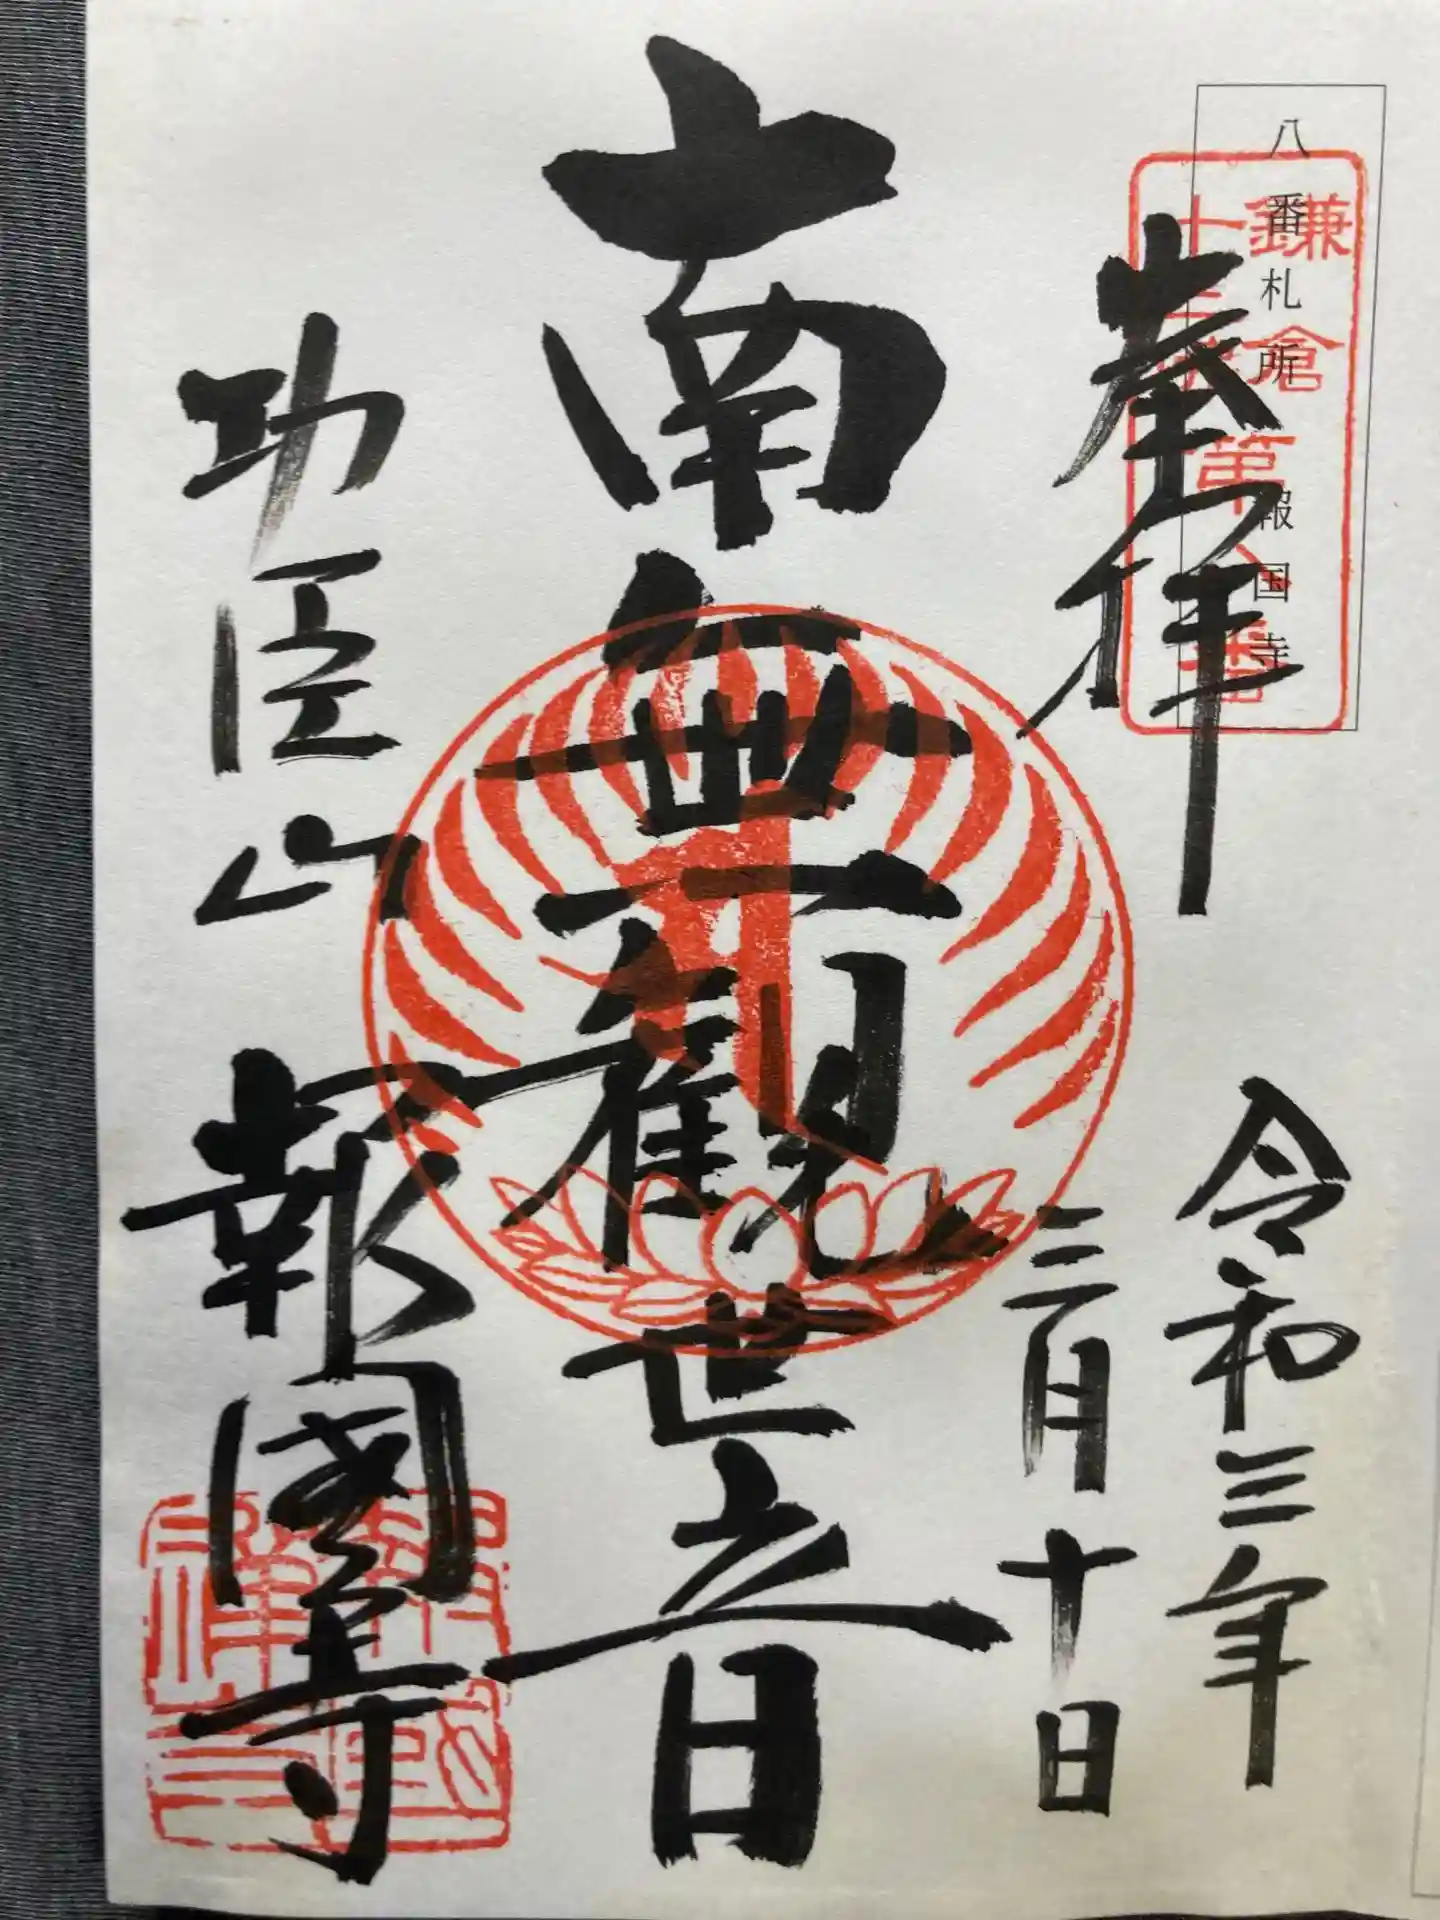 八番札所 報国寺
鎌倉
十三仏
第八番
奉拝
令和三年
三月十日
南無観世音
功臣山 報國寺